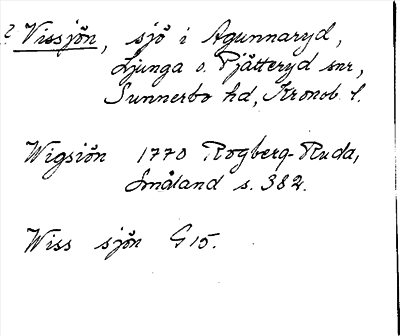 ? Vissjön, sjö i Agunnaryd,
Ljunga o. Pjätteryd snr,
Sunnerbo hd, Kronob. l.
Wigsiön 1770 Rogberg-Ruda,
Småland s. 382.
Wiss sjön G 15.